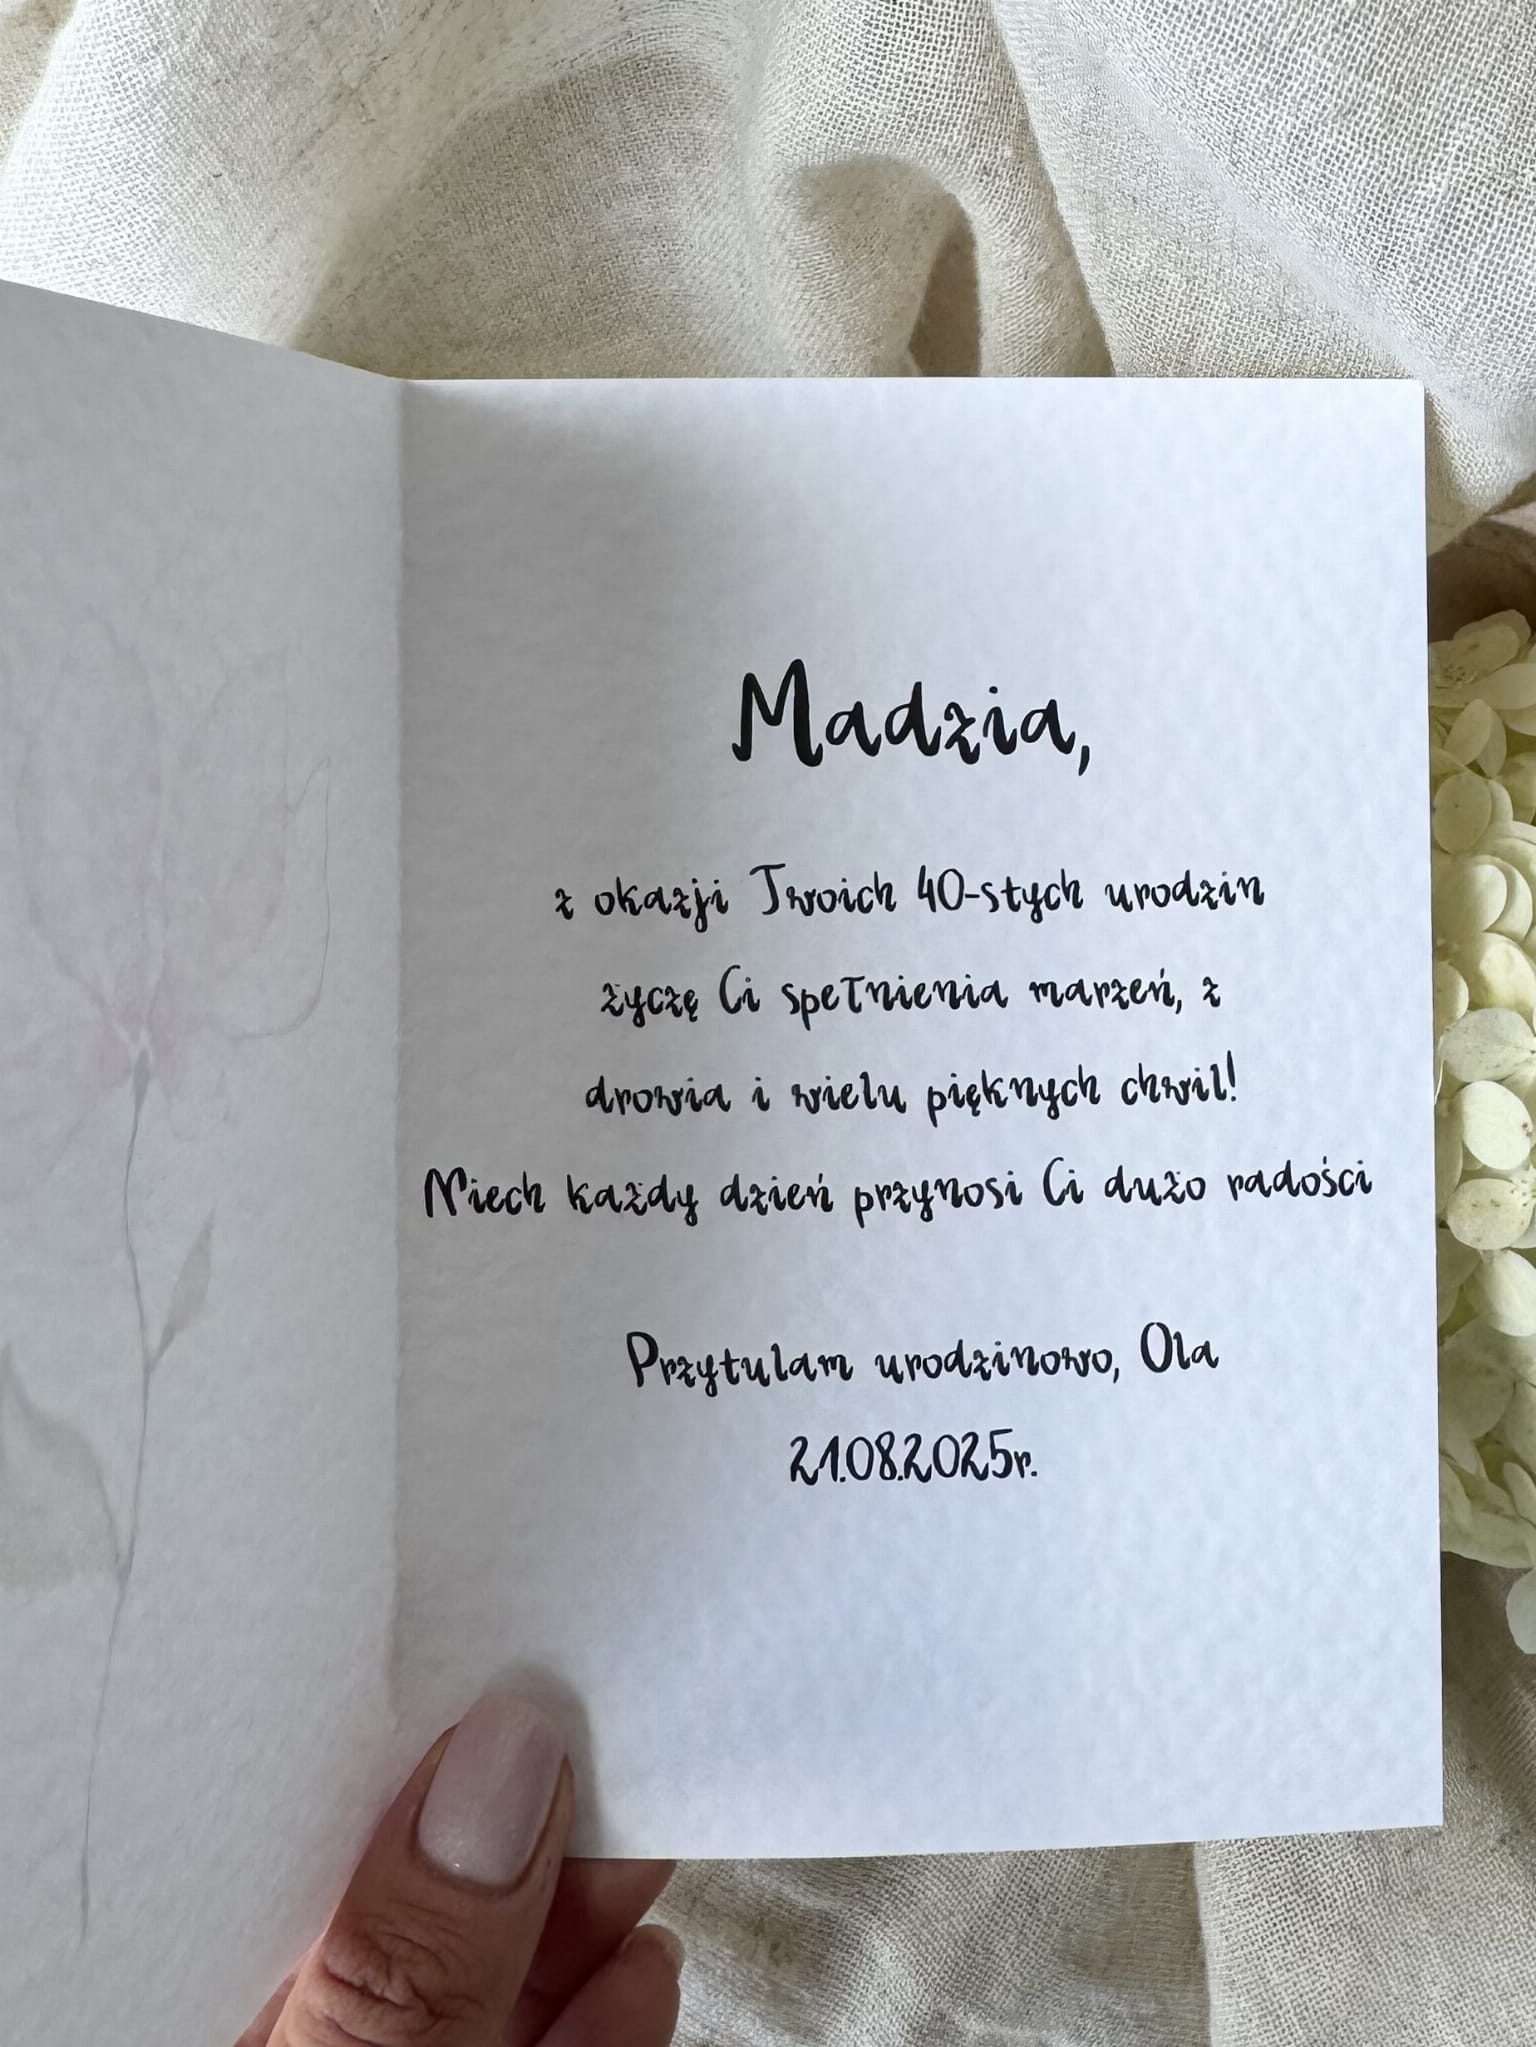 Madzia,
z okazji Twoich 40-stych urodzin
życzę Ci spełnienia marzeń, z
drowia i wielu pięknych chwil!
Niech każdy dzień przynosi Ci dużo radości
Przytulam urodzinowo, Ola
21.08.2025r.